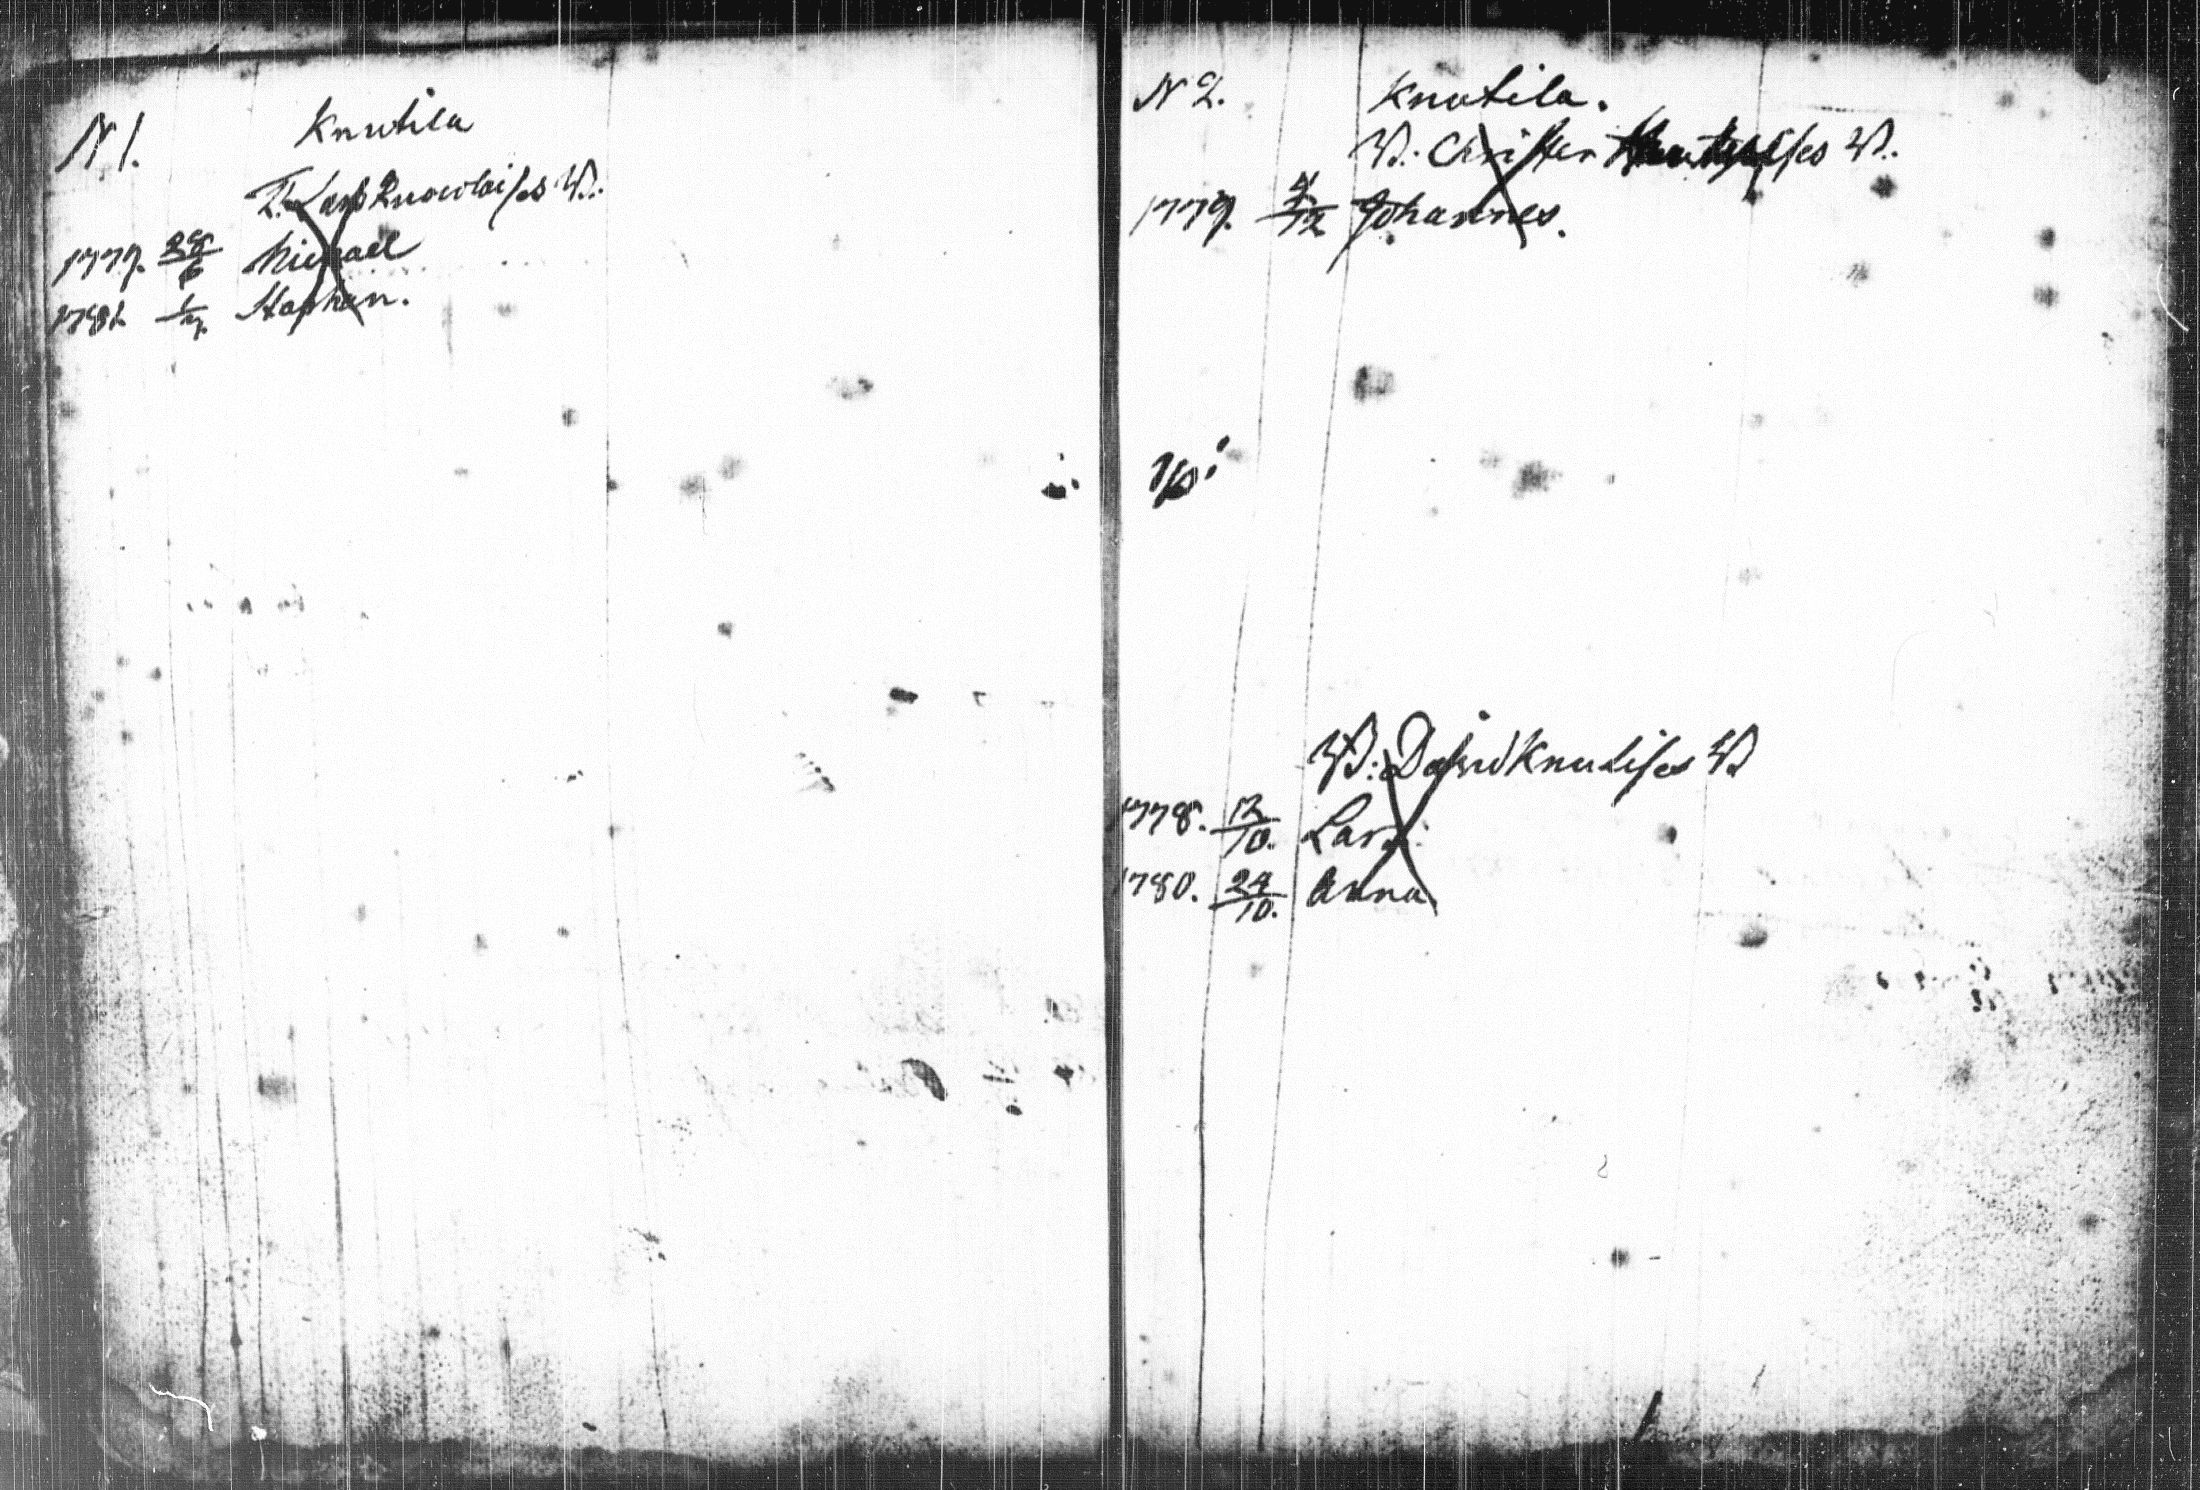 N 1. Knutila
T. Lars Knutilaises W.
1779. 28/6 Michael
1781 1/7. Staphan.
N 2. Knutila.
W. Christer W.
1779. 4/12 Johannes.
W: David Knutises W
1778. 12/10. Lars.
1780. 24/10. Anna